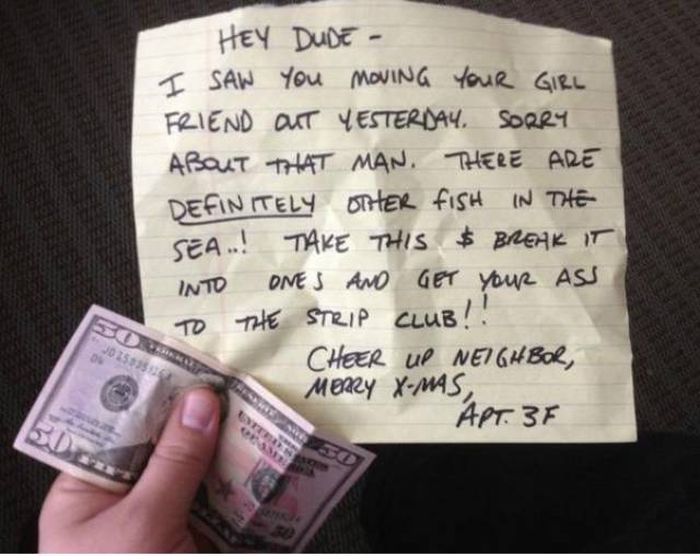 HEY DUDE -
I SAW YOU MOVING YOUR GIRL
FRIEND OUT YESTERDAY. SORRY
ABOUT THAT MAN. THERE ARE
DEFINITELY OTHER FISH IN THE
SEA..! TAKE THIS $ BREAK IT
INTO ONES AND GET YOUR ASS
TO THE STRIP CLUB!!
CHEER UP NEIGHBOR,
MERRY X-MAS,
APT. 3F
50
50
50
50